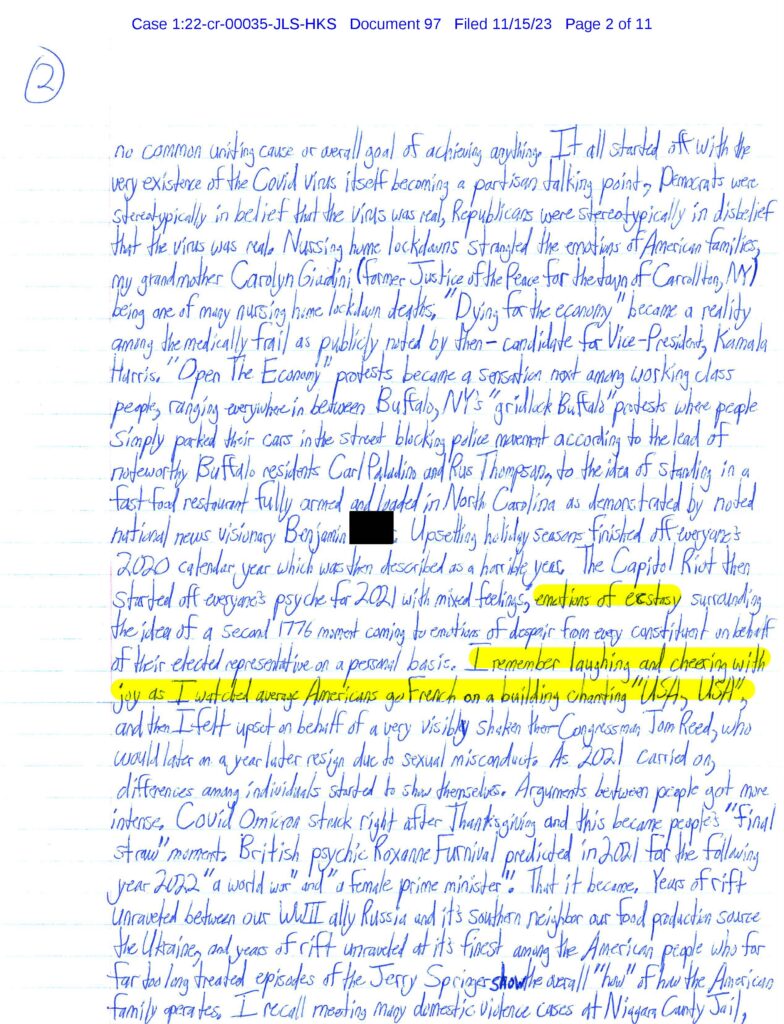 Case 1:22-cr-00035-JLS-HKS Document 97 Filed 11/15/23 Page 2 of 11
2
no common uniting cause or overall goal of achieving anything. It all started off with the
very existence of the Covid virus itself becoming a partisan talking point, Democrats were
stereotypically in belief that the virus was real, Republicans were stereotypically in disbelief
that the virus was real. Nursing home lockdowns strangled the emotions of American families,
my grandmother Carolyn Giardini (former Justice of the Peace for the town of Carrollton, NY)
being one of many nursing home lockdown deaths. "Dying for the economy" became a reality
among the medically frail as publicly noted by then-candidate for Vice-President, Kamala
Harris. "Open The Economy" protests became a sensation next among working class
people, ranging everywhere in between Buffalo, NY's "gridlock Buffalo" protests where people
simply parked their cars in the street blocking police movement according to the lead of
noteworthy Buffalo residents Carl Paladino and Rus Thompson, to the idea of standing in a
fast food restaurant fully armed and loaded in North Carolina as demonstrated by noted
national news visionary Benjamin . Upsetting holiday seasons finished off everyone's
2020 calendar year which was then described as a horrible year. The Capitol Riot then
started off everyone's psyche for 2021 with mixed feelings, emotions of ecstasy surrounding
the idea of a second 1776 moment coming to emotions of despair from every constituent on behalf
of their elected representative on a personal basis. I remember laughing and cheering with
joy as I watched average Americans go French on a building chanting "USA, USA",
and then I felt upset on behalf of a very visibly shaken then-Congressman Tom Reed, who
would later on a year later resign due to sexual misconduct. As 2021 carried on,
differences among individuals started to show themselves. Arguments between people got more
intense. Covid Omicron struck right after Thanksgiving and this became people's "final
straw" moment. British psychic Roxanne Furnival predicted in 2021 for the following
year 2022 "a world war" and "a female prime minister". That it became. Years of rift
unraveled between our WWII ally Russia and it's southern neighbor our food production source
the Ukraine, and years of rift unraveled at it's finest among the American people who for
far too long treated episodes of the Jerry Springer show the overall "how" of how the American
family operates. I recall meeting many domestic violence cases at Niagara County Jail,